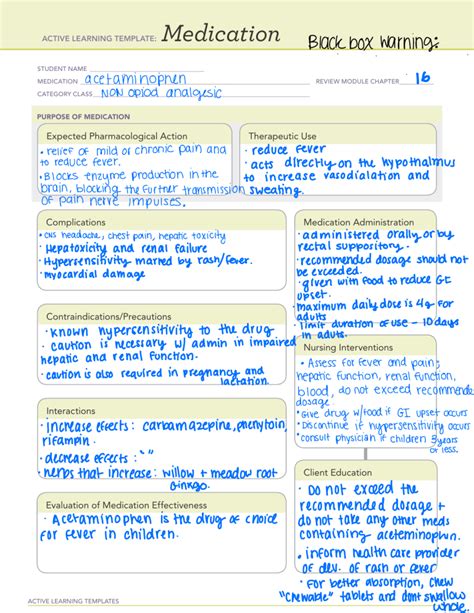 ACTIVE LEARNING TEMPLATE: Medication
Black box warning:
STUDENT NAME
MEDICATION acetaminophen
REVIEW MODULE CHAPTER 16
CATEGORY CLASS NON opiod analgesic
PURPOSE OF MEDICATION
Expected Pharmacological Action
• relief of mild or chronic pain and
to reduce fever.
• Blocks enzyme production in the
brain, blocking the further transmission
of pain nerve impulses.
Therapeutic Use
• reduce fever
• acts directly on the hypothalmus
to increase vasodialation and
sweating.
Complications
• CNS headache, chest pain, hepatic toxicity
• Hepatoxicity and renal failure
• Hypersensitivity marred by rash/fever.
• myocardial damage
Medication Administration
• administered orally or by
rectal suppository.
• recommended dosage should not
be exceeded.
• given with food to reduce GI
upset.
• maximum daily dose is 4g for
adults
• limit duration of use - 10 days
in adults.
Contraindications/Precautions
• known hypersensitivity to the drug
• caution is necessary w/ admin in impaired
hepatic and renal function.
• caution is also required in pregnancy and
lactation
Nursing Interventions
• Assess for fever and pain,
hepatic function, renal function,
blood, do not exceed recommended
dosage
• Give drug w/food if GI upset occurs
• Discontinue if hypersensitivity occurs
• consult physician if children 3 years
or less.
Interactions
• increase effects: carbamazepine, phenytoin,
rifampin.
• decrease effects: " "
• herbs that increase: willow + meadow root
Ginkgo.
Evaluation of Medication Effectiveness
• Acetaminophen is the drug of choice
for fever in children.
Client Education
• Do not exceed the
recommended dosage +
do not take any other meds
containing aceteminophen.
• inform health care provider
of dev. of rash or fever
• For better absorption, chew
"Chewable" tablets and dont swallow
whole.
ACTIVE LEARNING TEMPLATES